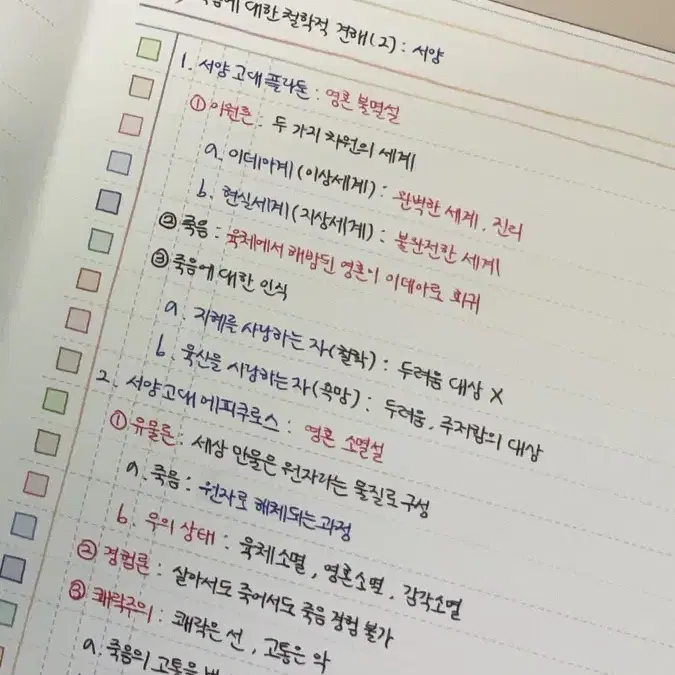 대한 철학적 견해(2) : 서양
1. 서양 고대 플라톤 : 영혼 불멸설
① 이원론 : 두 가지 차원의 세계
a. 이데아계(이상세계) : 완벽한 세계, 진리
b. 현실세계(지상세계) : 불완전한 세계
② 죽음 : 육체에서 해방된 영혼이 이데아로 회귀
③ 죽음에 대한 인식
a. 지혜를 사랑하는 자(철학) : 두려움 대상 X
b. 육신을 사랑하는 자(욕망) : 두려움, 주저함의 대상
2. 서양 고대 에피쿠로스 : 영혼 소멸설
① 유물론 : 세상 만물은 원자라는 물질로 구성
a. 죽음 : 원자로 해체되는 과정
b. 무의 상태 : 육체소멸, 영혼소멸, 감각소멸
② 경험론 : 살아서도 죽어서도 죽음 경험 불가
③ 쾌락주의 : 쾌락은 선, 고통은 악
a. 죽음의 고통을